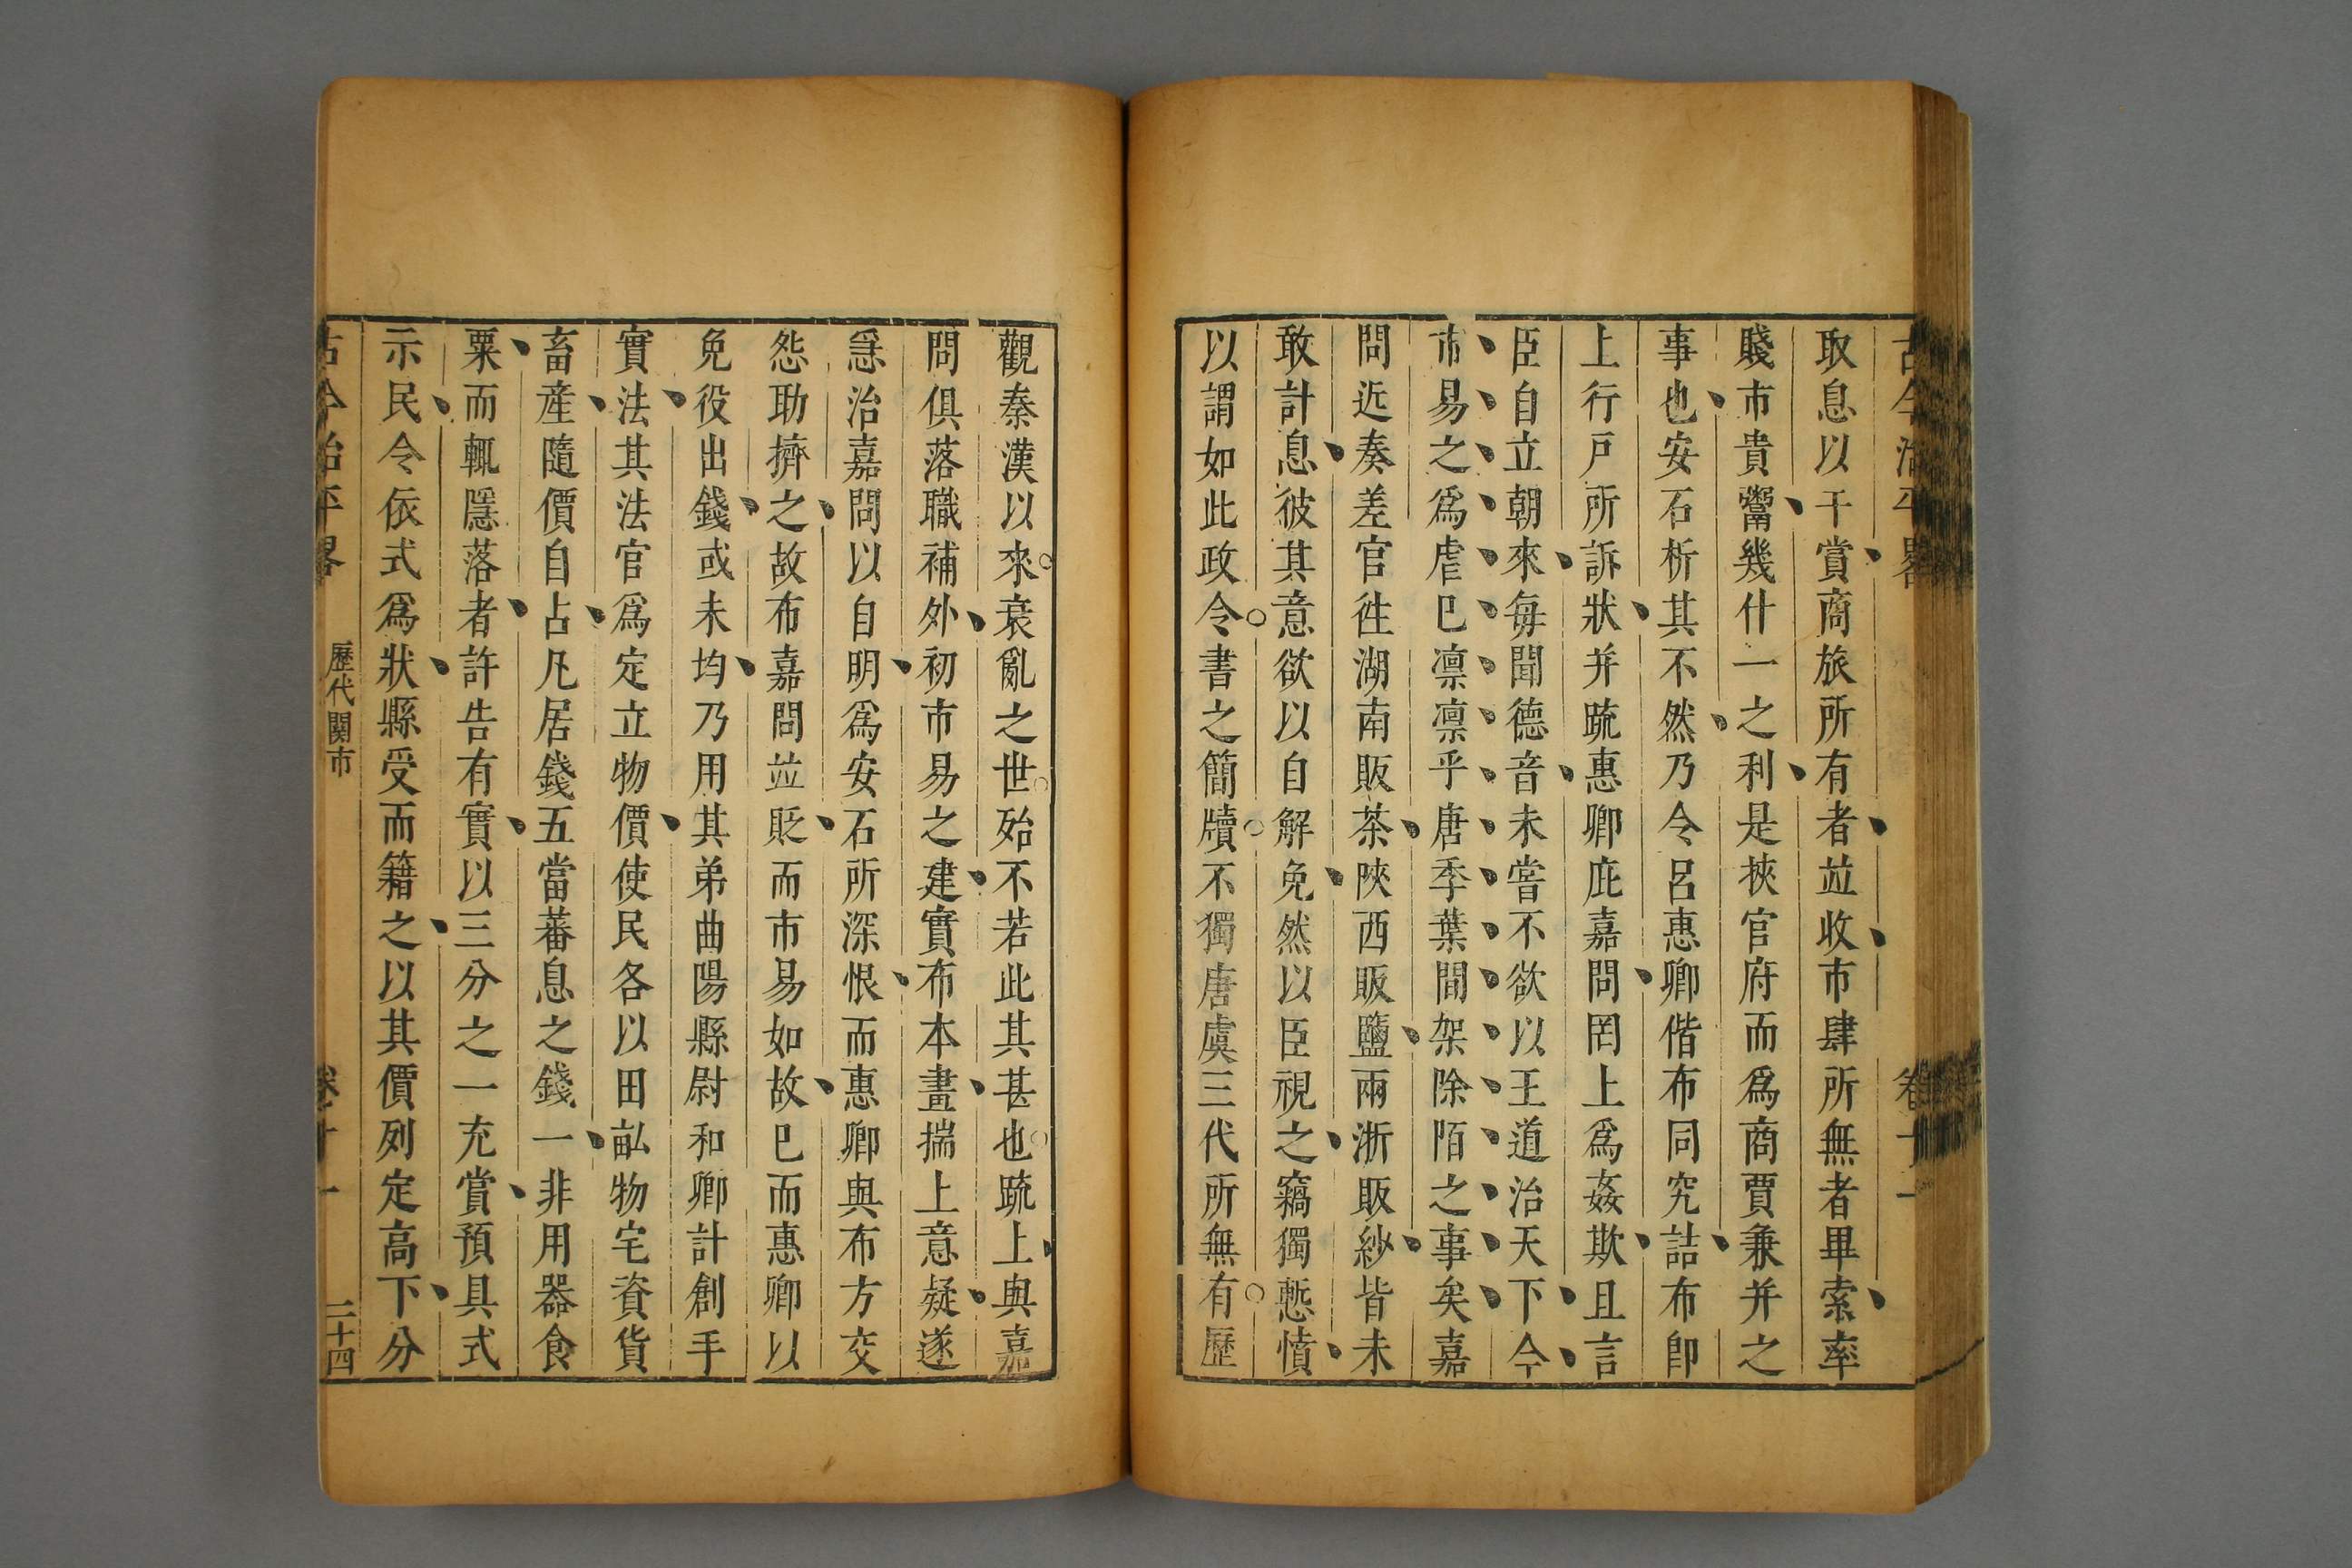 古今治平畧 卷十一
取息以干賞商旅所有者並收市肆所無者畢索率
賤市貴鬻幾什一之利是挾官府而爲商賈兼并之
事也安石析其不然乃令呂惠卿偕布同究詰布卽
上行戸所訴狀并䟽惠卿庇嘉問罔上爲姦欺且言
臣自立朝來每聞德音未嘗不欲以王道治天下今
市易之爲虐已凛凛乎唐季葉間架除陌之事矣嘉
問近奏差官徃湖南販茶陜西販鹽兩浙販紗皆未
敢計息彼其意欲以自解免然以臣視之竊獨慙憤
以謂如此政令書之簡牘不獨唐虞三代所無有歷
觀秦漢以來衰亂之世殆不若此其甚也䟽上與嘉
問俱落職補外初市易之建實布本畫揣上意疑遂
急治嘉問以自明爲安石所深恨而惠卿與布方交
怨助擠之故布嘉問並貶而市易如故已而惠卿以
免役出錢或未均乃用其弟曲陽縣尉和卿計創手
實法其法官爲定立物價使民各以田畝物宅資貨
畜產隨價自占凡居錢五當蕃息之錢一非用器食
粟而輒隱落者許告有實以三分之一充賞預具式
示民令依式爲狀縣受而籍之以其價列定高下分
古今治平畧 歷代關市 卷十一 三十四